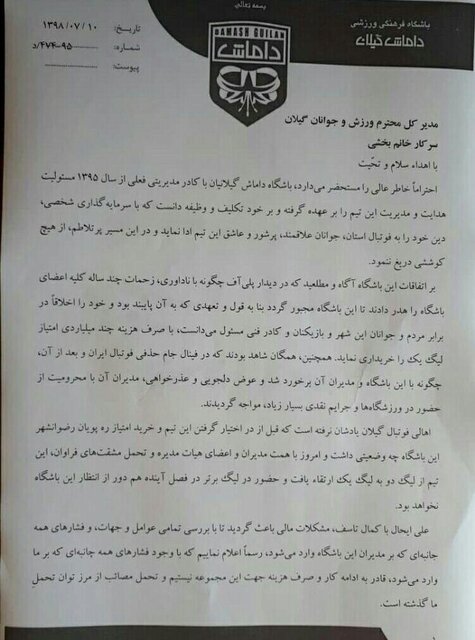 بسمه تعالی
باشگاه فرهنگی ورزشی
داماش گیلان
DAMASH GUILAN
داماش
تاریخ: ۱۳۹۸/۰۷/۱۰
شماره: ۴۷۴-۹۵/د
پیوست:
مدیر کل محترم ورزش و جوانان گیلان
سرکار خانم بخشی
با اهداء سلام و تحّیت
احتراماً خاطر عالی را مستحضر می‌دارد، باشگاه داماش گیلانیان با کادر مدیریتی فعلی از سال ۱۳۹۵ مسئولیت
هدایت و مدیریت این تیم را بر عهده گرفته و بر خود تکلیف و وظیفه دانست که با سرمایه‌گذاری شخصی،
دین خود را به فوتبال استان، جوانان علاقمند، پرشور و عاشق این تیم ادا نماید و در این مسیر پرتلاطم، از هیچ
کوششی دریغ ننمود.
بر اتفاقات این باشگاه آگاه و مطلعید که در دیدار پلی‌آف چگونه با ناداوری، زحمات چند ساله کلیه اعضای
باشگاه را هدر دادند تا این باشگاه مجبور گردد بنا به قول و تعهدی که به آن پایبند بود و خود را اخلاقاً در
برابر مردم و جوانان این شهر و بازیکنان و کادر فنی مسئول می‌دانست، با صرف هزینه چند میلیاردی امتیاز
لیگ یک را خریداری نماید. همچنین، همگان شاهد بودند که در فینال جام حذفی فوتبال ایران و بعد از آن،
چگونه با این باشگاه و مدیران آن برخورد شد و عوض دلجویی و عذرخواهی، مدیران آن با محرومیت از
حضور در ورزشگاه‌ها و جرایم نقدی بسیار زیاد، مواجه گردیدند.
اهالی فوتبال گیلان یادشان نرفته است که قبل از در اختیار گرفتن این تیم و خرید امتیاز ره پویان رضوانشهر
این باشگاه چه وضعیتی داشت و امروز با همت مدیران و اعضای هیات مدیره و تحمل مشقت‌های فراوان، این
تیم از لیگ دو به لیگ یک ارتقاء یافت و حضور در لیگ برتر در فصل آینده هم دور از انتظار این باشگاه
نخواهد بود.
علی ایحال با کمال تاسف، مشکلات مالی باعث گردید تا با بررسی تمامی عوامل و جهات، و فشارهای همه
جانبه‌ای که بر مدیران این باشگاه وارد می‌شود، رسماً اعلام نماییم که با وجود فشارهای همه چانبه‌ای که بر ما
وارد می‌شود، قادر به ادامه کار و صرف هزینه جهت این مجموعه نیستیم و تحمل مصائب از مرز توان تحمل
ما گذشته است.